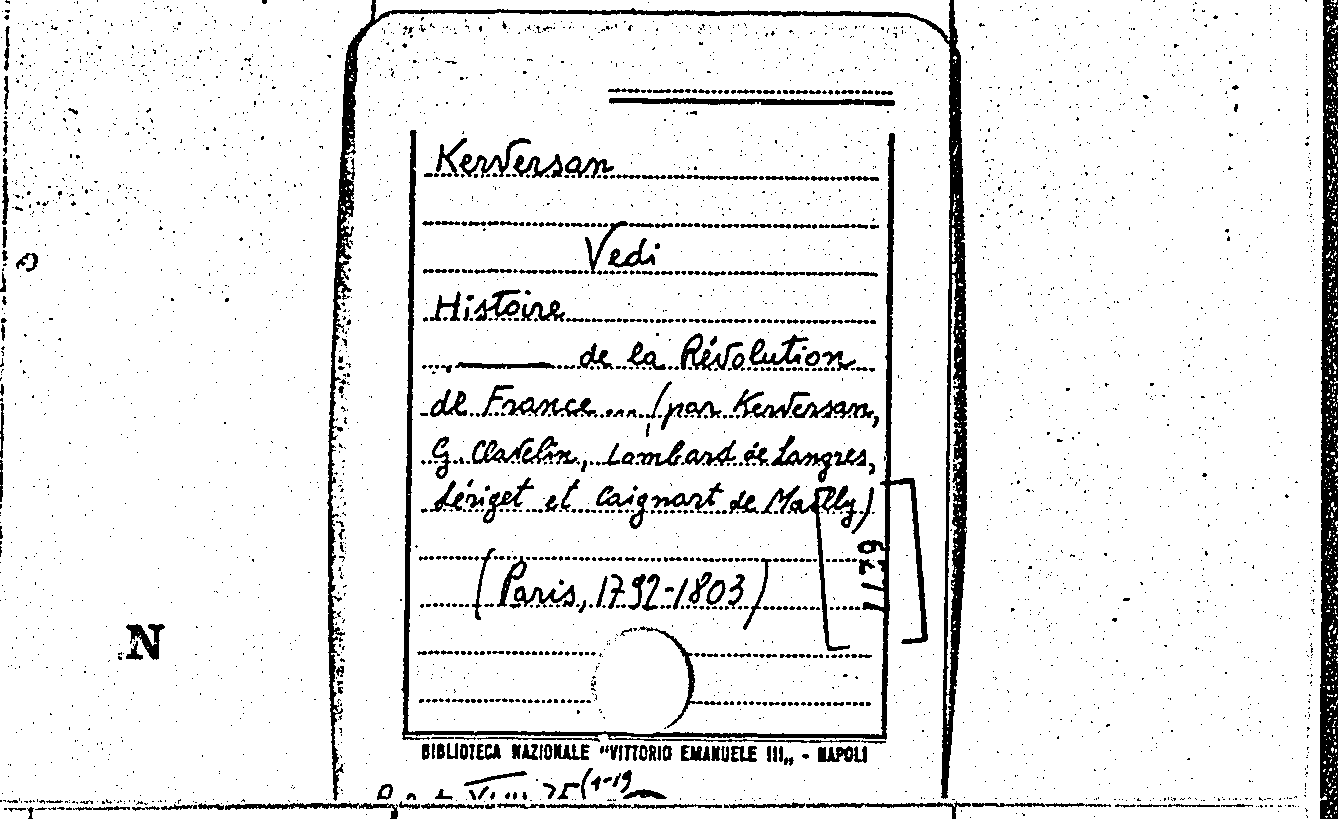 Kerversan
Vedi
Histoire
——— de la Révolution
de France... (par Kerversan,
G. Clavelin, Lombard de Langres,
Lériget et Caignart de Mailly)
(Paris, 1792-1803)
N
BIBLIOTECA NAZIONALE "VITTORIO EMANUELE III„ - NAPOLI
(1-19